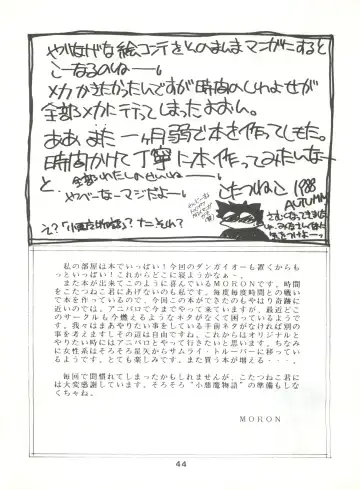 やばげな絵コンテをそのまんまマンガにすると
こーなるのねー。
メカかきたかったんですが時間のしわよせが
全部メカに行ってしまったよおん。
ああ また 一ヶ月弱で本を作ってしもた。
時間かけて丁寧に本作ってみたいなー
と
全部わたしのせいねー
やべーなーマジだよー。
こたつねこ 1988
AUTUMN
え?
ナニそれ?
私の部屋は本でいっぱい!今回のダンガイオーも置くからも
っといっぱい!これからどこに寝ようかなぁー。
また本が出来てこのように喜んでいるMORONです。時間
をこたつねこ君にあげないのも私です。毎度毎度時間との戦い
で本を作っているので、今回この本ができたのもやはり奇跡に
近いのでは。アニパロで今までやって来ていますが、最近どこ
のサークルも今燃えるようなネタがなくて困っているようで
す。我々はまあやりたい事をしている手前ネタがなければ別の
事を考えますしその辺は自由ですね。これからはオリジナルと
やりたい時にはアニパロとやって行きたいと思います。ちなみ
に女性系はそろそろ星矢からサムライ・トルーパーに移ってい
るようです。とても楽しみです。また買う本が増える・・・。
毎回で聞慣れてしまったかもしれませんが、こたつねこ君に
は大変感謝しています。そろそろ“小悪魔物語”の準備もしな
くちゃね。
MORON
44